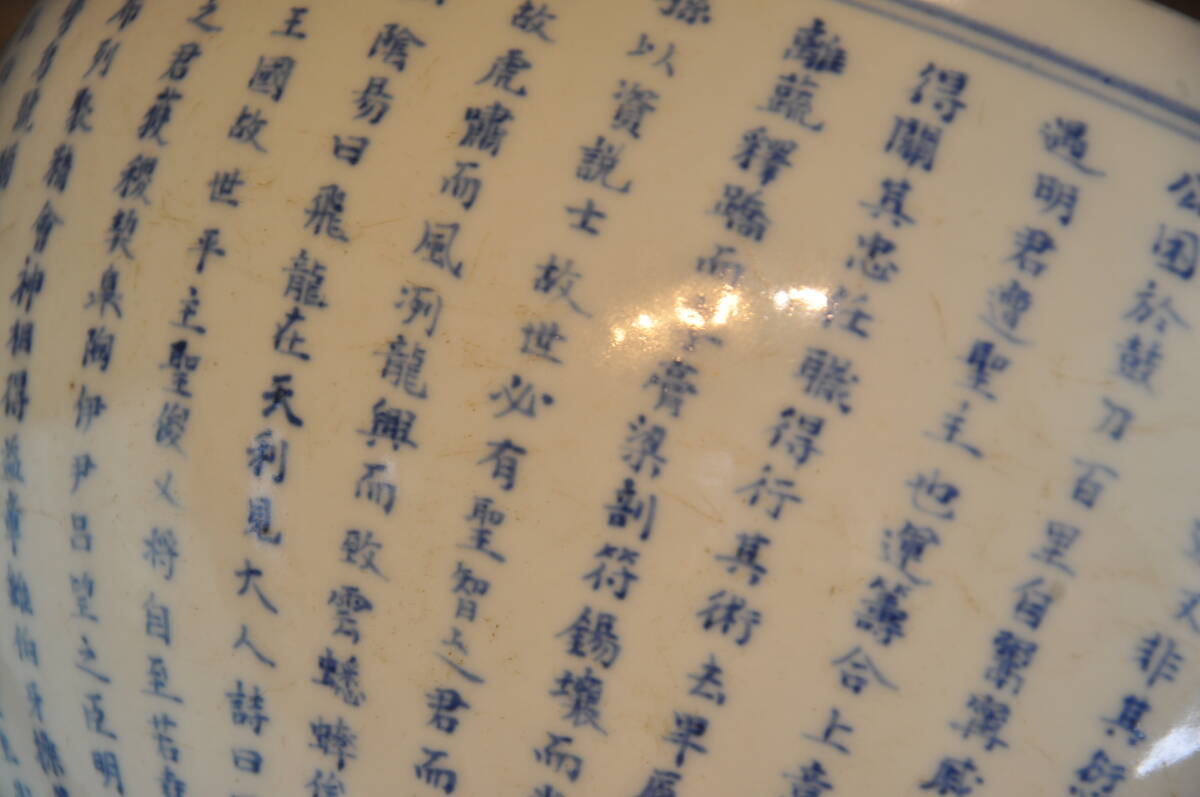 非其
公困於鼓刀百里自鬻甯戚
遇明君遭聖主也運籌合上意
得關其忠任職得行其術去卑辱
離蔬釋蹻而膏粱剖符錫壤而
孫以資說士故世必有聖智之君而
故虎嘯而風冽龍興而致雲蟋蟀俟
陰易曰飛龍在天利見大人詩曰
王國故世平主聖俊乂將自至若
之君獲稷契皋陶伊尹呂望之臣明
布列聚精會神相得益章雖伯牙操
烏號